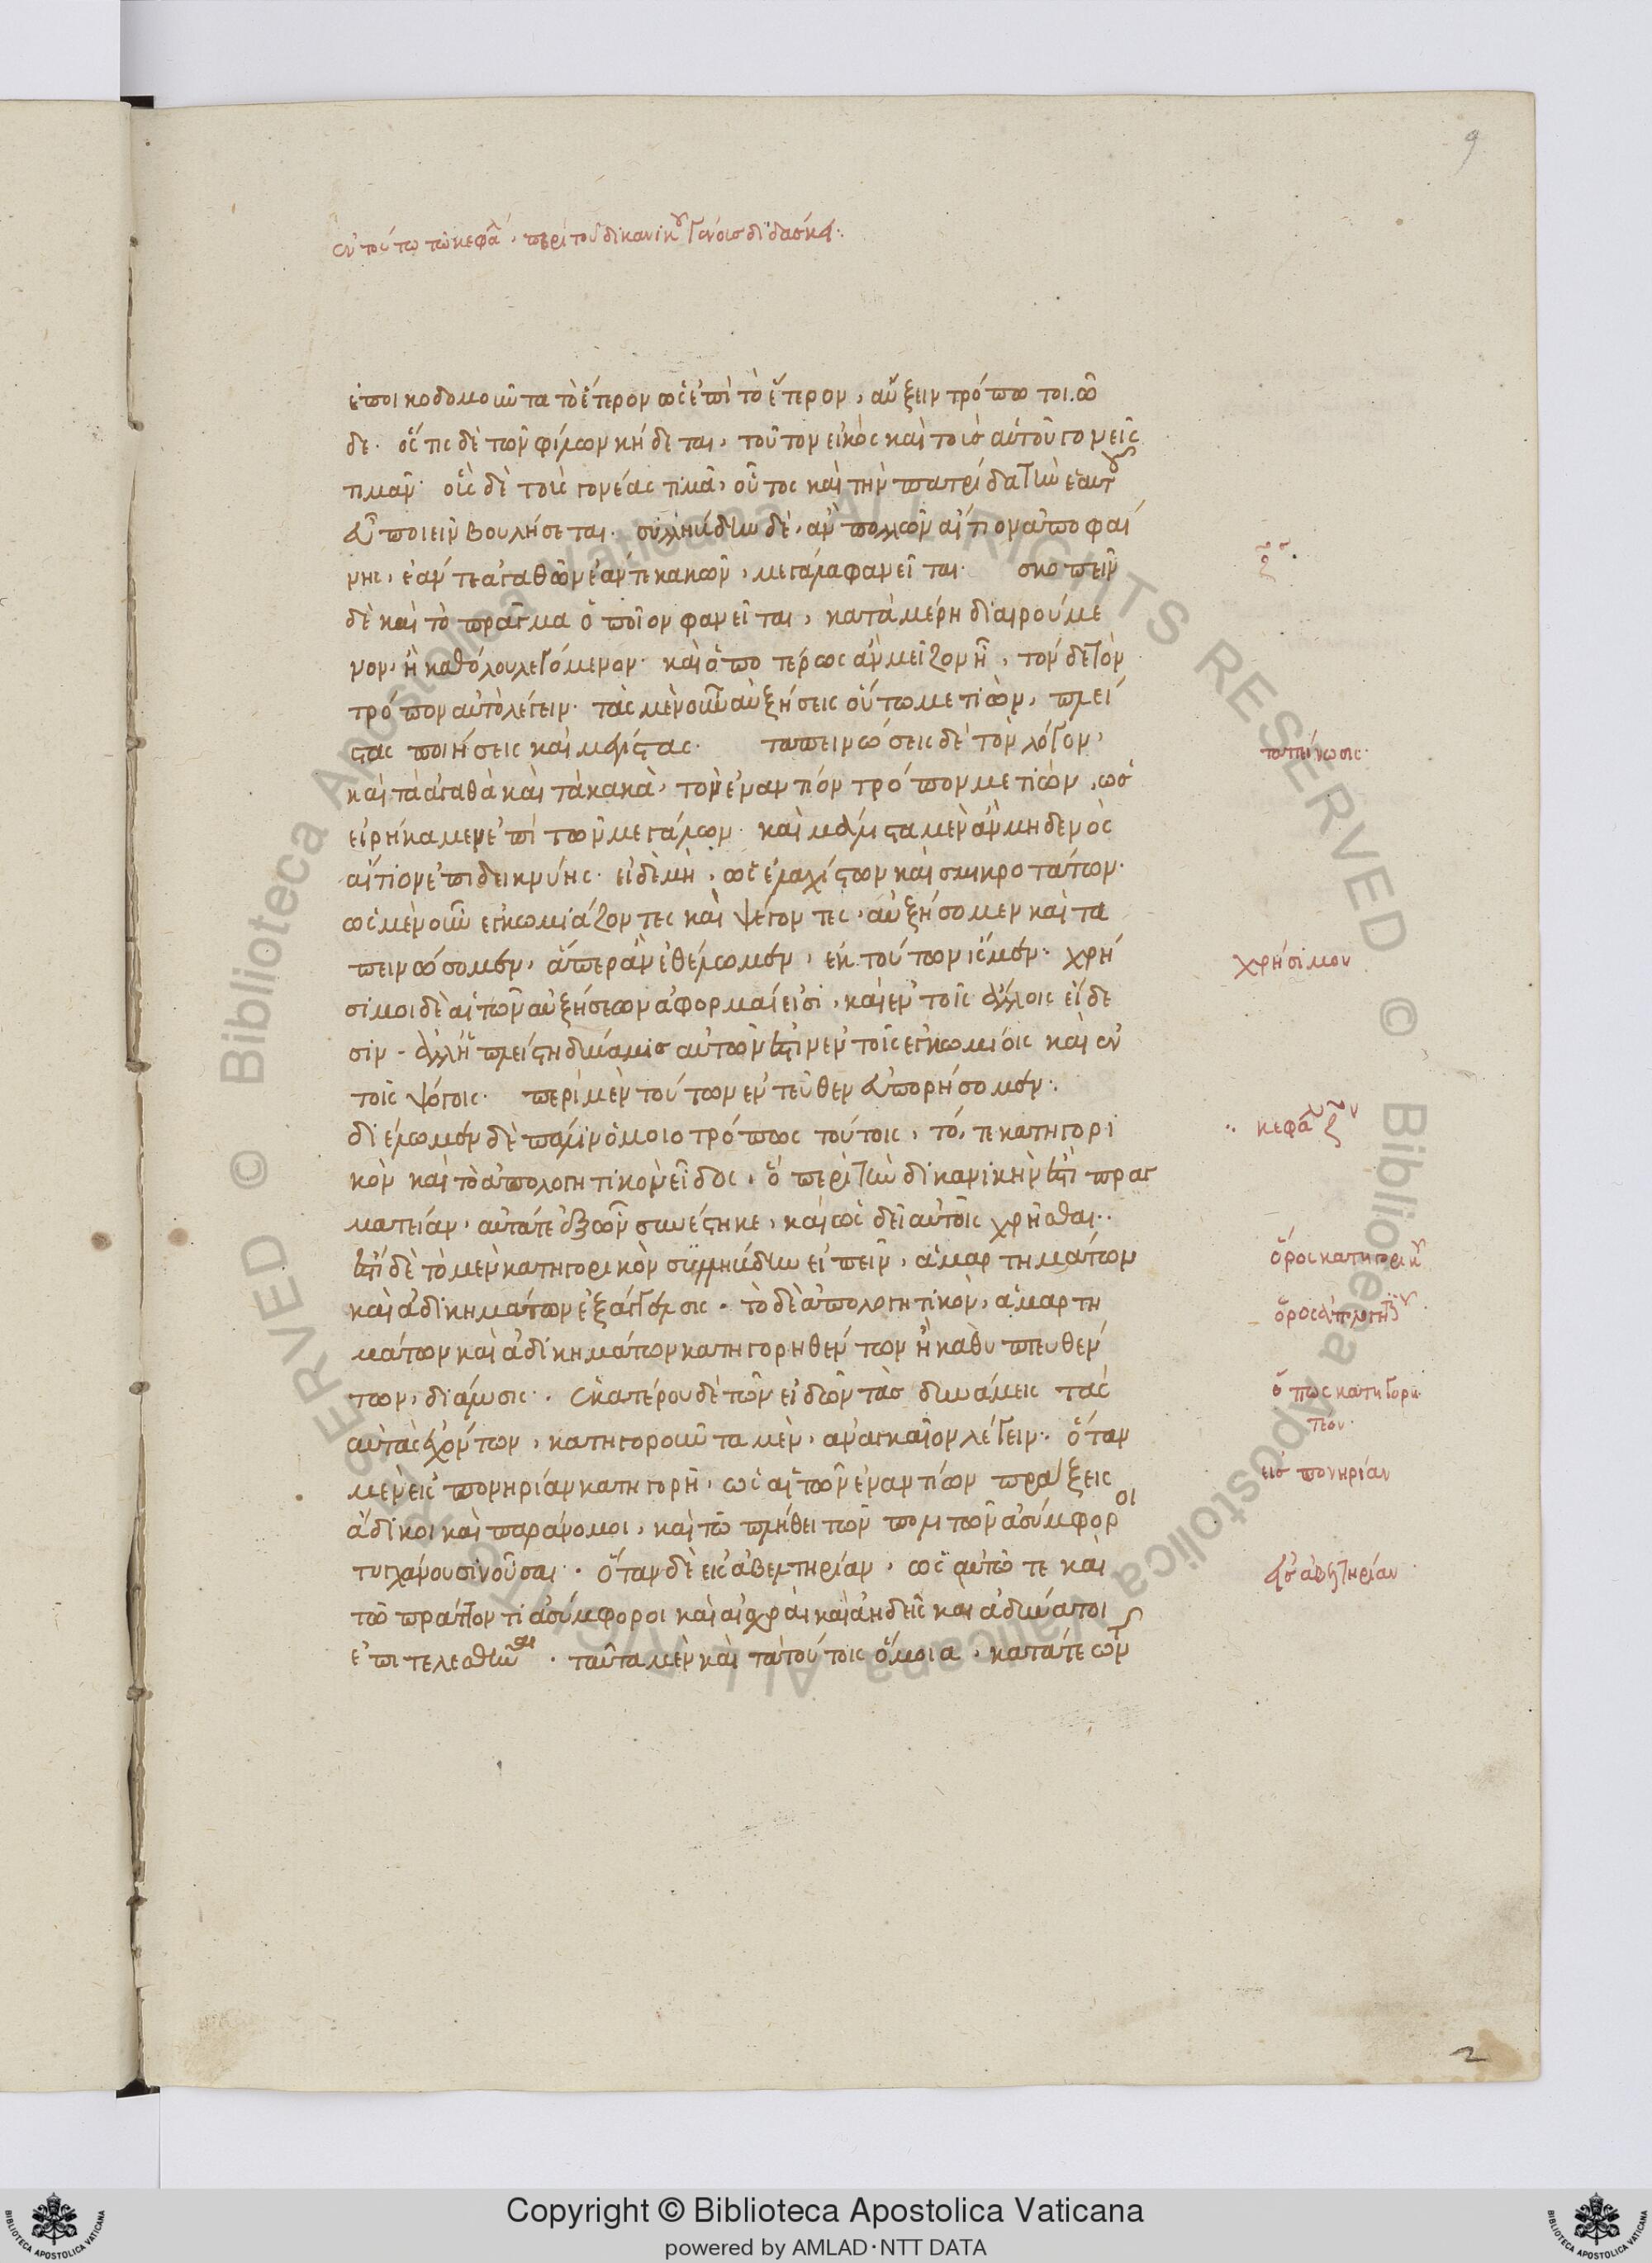 9
ἐν τούτω τῶ κεφα^λ, περὶ τοῦ δικανικοῦ γένους διδάσκει:
ἐποικοδομοῦντα τὸ ἕτερον ὡς ἐπὶ τὸ ἕτερον, αὔξειν τρόπω τοιῶ
δε· ὅστις δὲ τῶν φίλων κήδεται, τοῦτον εἰκὸς καὶ τοὺς αὑτοῦ γονεῖς
τιμᾶν· ὃς δὲ τοὺς γονέας τιμᾶ, οὗτος καὶ τὴν πατρίδα τὴν ἑαυτοῦ
εὖ ποιεῖν βουλήσεται· συλλήβδην δὲ, ἂν πολλῶν αἴτιον ἀποφαί
νης, ἐάν τε ἀγαθῶν ἐάν τε κακῶν, μεγάλα φανεῖται· σκοπεῖν
δὲ καὶ τὸ πρᾶγμα ὁποῖον φανεῖται, κατὰ μέρη διαιρούμε
νον, ἢ καθόλου λεγόμενον· καὶ ὁποτέρως ἂν μεῖζον ἦ, τόνδε τὸν
τρόπον αὐτὸ λέγειν· τὰς μὲν οὖν αὐξήσεις οὕτω μετιὼν, πλεί
στας ποιήσεις καὶ μεγίστας· ταπεινώσεις δὲ τὸν λόγον,
καὶ τὰ ἀγαθὰ καὶ τὰ κακὰ, τὸν ἐναντίον τρόπον μετιὼν, ὡς
εἰρήκαμεν ἐπὶ τῶν μεγάλων· καὶ μάλιστα μὲν ἂν μηδενὸς
αἴτιον ἐπιδεικνύης· εἰ δὲ μὴ, ὡς ἐλαχίστων καὶ σμικροτάτων·
ὡς μὲν οὖν ἐγκωμιάζοντες καὶ ψέγοντες, αὐξήσομεν καὶ τα
πεινώσομεν, ἅπερ ἂν ἐθέλωμεν, ἐκ τούτων ἴσμεν· χρή
σιμοι δὲ αἱ τῶν αὐξήσεων ἀφορμαί εἰσι, καὶ ἐν τοῖς ἄλλοις εἴδε
σιν· ἀλλ' ἡ πλείστη δύναμις αὐτῶν ἐστὶν ἐν τοῖς ἐγκωμίοις καὶ ἐν
τοῖς ψόγοις· περὶ μὲν τούτων ἐντεῦθεν εὐπορήσομεν:
διέλωμεν δὲ πάλιν ὁμοιοτρόπως τούτοις, τό, τε κατηγορι
κὸν καὶ τὸ ἀπολογητικὸν εἶδος, ὃ περὶ τὴν δικανικὴν ἐστὶ πραγ
ματείαν, αὐτά τε ἐξ ὧν συνέστηκε, καὶ ὡς δεῖ αὐτοῖς χρῆσθαι·
ἔστι δὲ τὸ μὲν κατηγορικὸν συλλήβδην εἰπεῖν, ἁμαρτημάτων
καὶ ἀδικημάτων ἐξάγγελσις· τὸ δὲ ἀπολογητικὸν, ἁμαρτη
μάτων καὶ ἀδικημάτων κατηγορηθέντων ἢ καθυποπτευθέν
των, διάλυσις· ἑκατέρου δὲ τῶν εἰδῶν τὰς δυνάμεις τὰς
αὐτὰς ἐχόντων, κατηγοροῦντα μὲν, ἀναγκαῖον λέγειν· ὅταν
μὲν εἰς πονηρίαν κατηγορῆ, ὡς αἱ τῶν ἐναντίων πράξεις
ἄδικοι καὶ παράνομοι, καὶ τῶ πλήθει τῶν πολιτῶν ἀσύμφοροι
τυγχάνουσιν οὖσαι· ὅταν δὲ εἰς ἀβελτηρίαν, ὡς αὐτῶ τε καὶ
τῶ πράττοντι ἀσύμφοροι καὶ αἰσχραὶ καὶ ἀηδεῖς καὶ ἀδύνατοι
ἐπιτελεσθῆναι· ταῦτα μὲν καὶ τὰ τούτοις ὅμοια, κατά τε τῶν
ταπείνωσις·
χρήσιμον
κεφα^λ
ὅρος κατηγορικοῦ
ὅρος ἀπολογητικοῦ
ὅπως κατηγορη
τέον·
εἰς πονηρίαν
εἰς ἀβελτηρίαν
2
© Biblioteca Apostolica Vaticana ALL RIGHTS RESERVED © Biblioteca Apostolica Vaticana ALL RIGHTS RESERVED
Copyright © Biblioteca Apostolica Vaticana
powered by AMLAD·NTT DATA
BIBLIOTECA APOSTOLICA VATICANA
BIBLIOTECA APOSTOLICA VATICANA